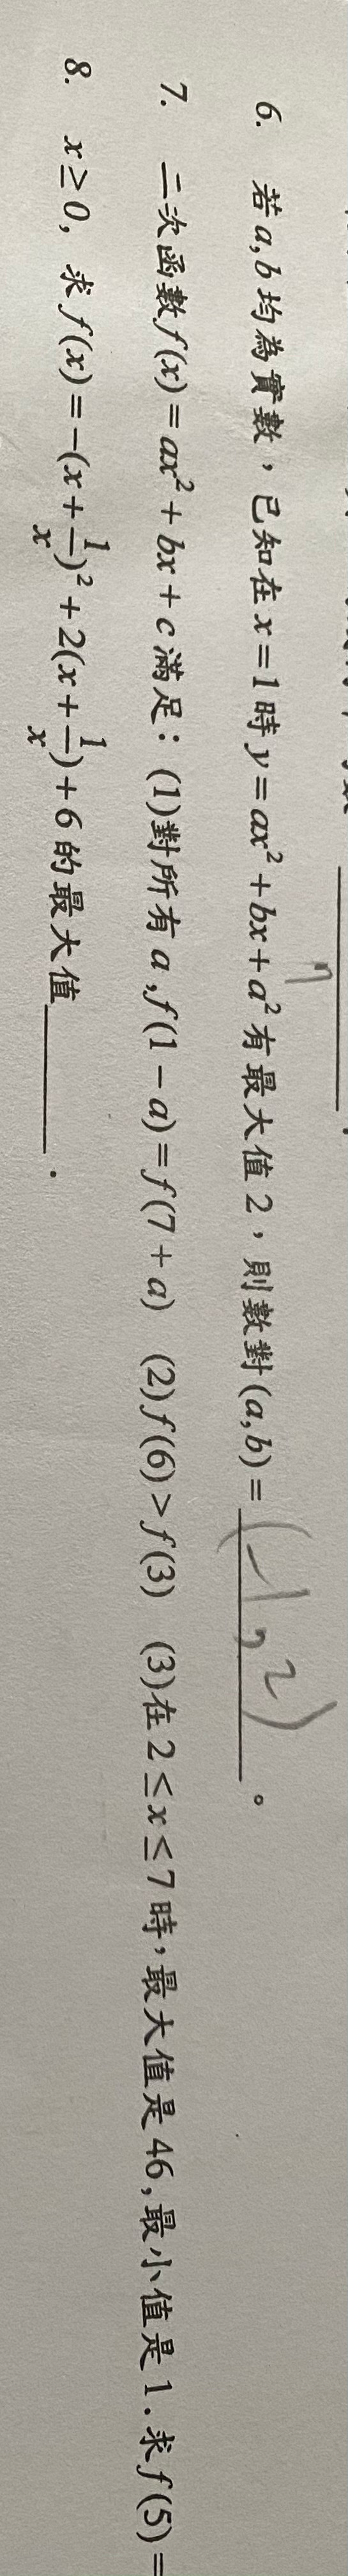 6. 若a,b均為實數，已知在x=1時y=ax²+bx+a²有最大值2，則數對(a,b)=(-1,2)。
7. 二次函數f(x)=ax²+bx+c滿足：(1)對所有a,f(1-a)=f(7+a) (2)f(6)>f(3) (3)在2≤x≤7時,最大值是46,最小值是1.求f(5)=
8. x≥0, 求f(x)=-(x+1/x)²+2(x+1/x)+6的最大值______.